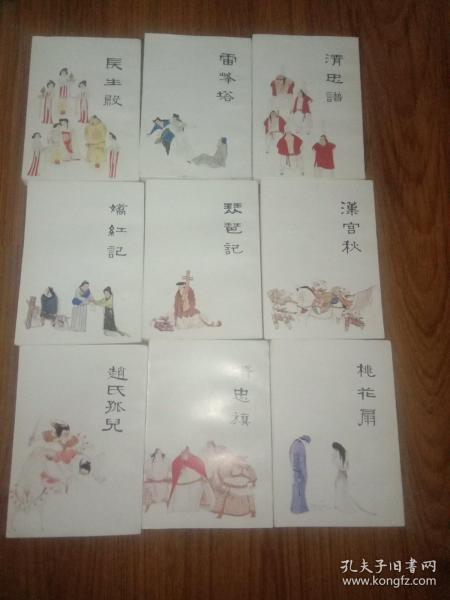 長生殿
雷峯塔
清忠譜
嬌紅記
琵琶記
漢宮秋
趙氏孤兒
忠旗
桃花扇
孔夫子旧书网
www.kongfz.com